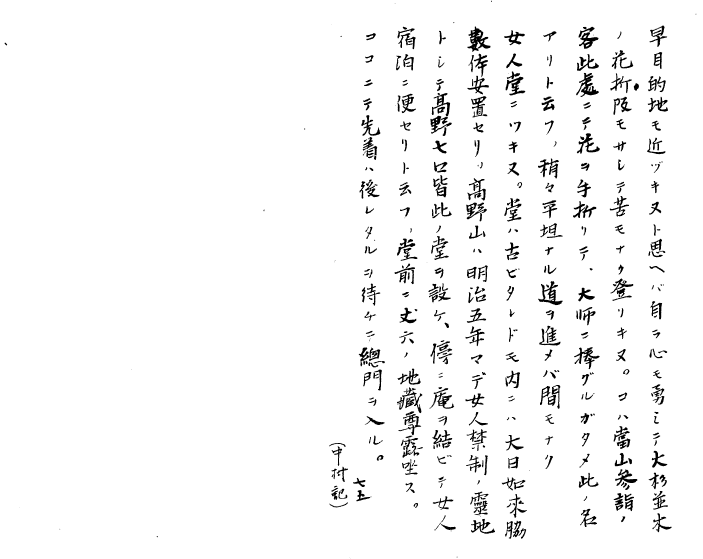 早目的地モ近ヅキヌト思ヘバ自ラ心モ勇ミテ大杉並木
ノ花折阪モサシテ苦モナク登リキヌ。コハ當山參詣ノ
客此處ニテ花ヲ手折リテ、大師ニ捧グルガタメ此ノ名
アリト云フ、稍々平坦ナル道ヲ進メバ間モナク
女人堂ニツキヌ。堂ハ古ビタレドモ內ニハ大日如來脇
數体安置セリ。高野山ハ明治五年マデ女人禁制ノ靈地
トシテ高野七口皆此ノ堂ヲ設ケ、傍ニ庵ヲ結ビテ女人
宿泊ニ便セリト云フ、堂前ニ丈六ノ地藏尊露坐ス。
ココニテ先着ハ後レタルヲ待チテ總門ヲ入ル。
(中村記)
七五